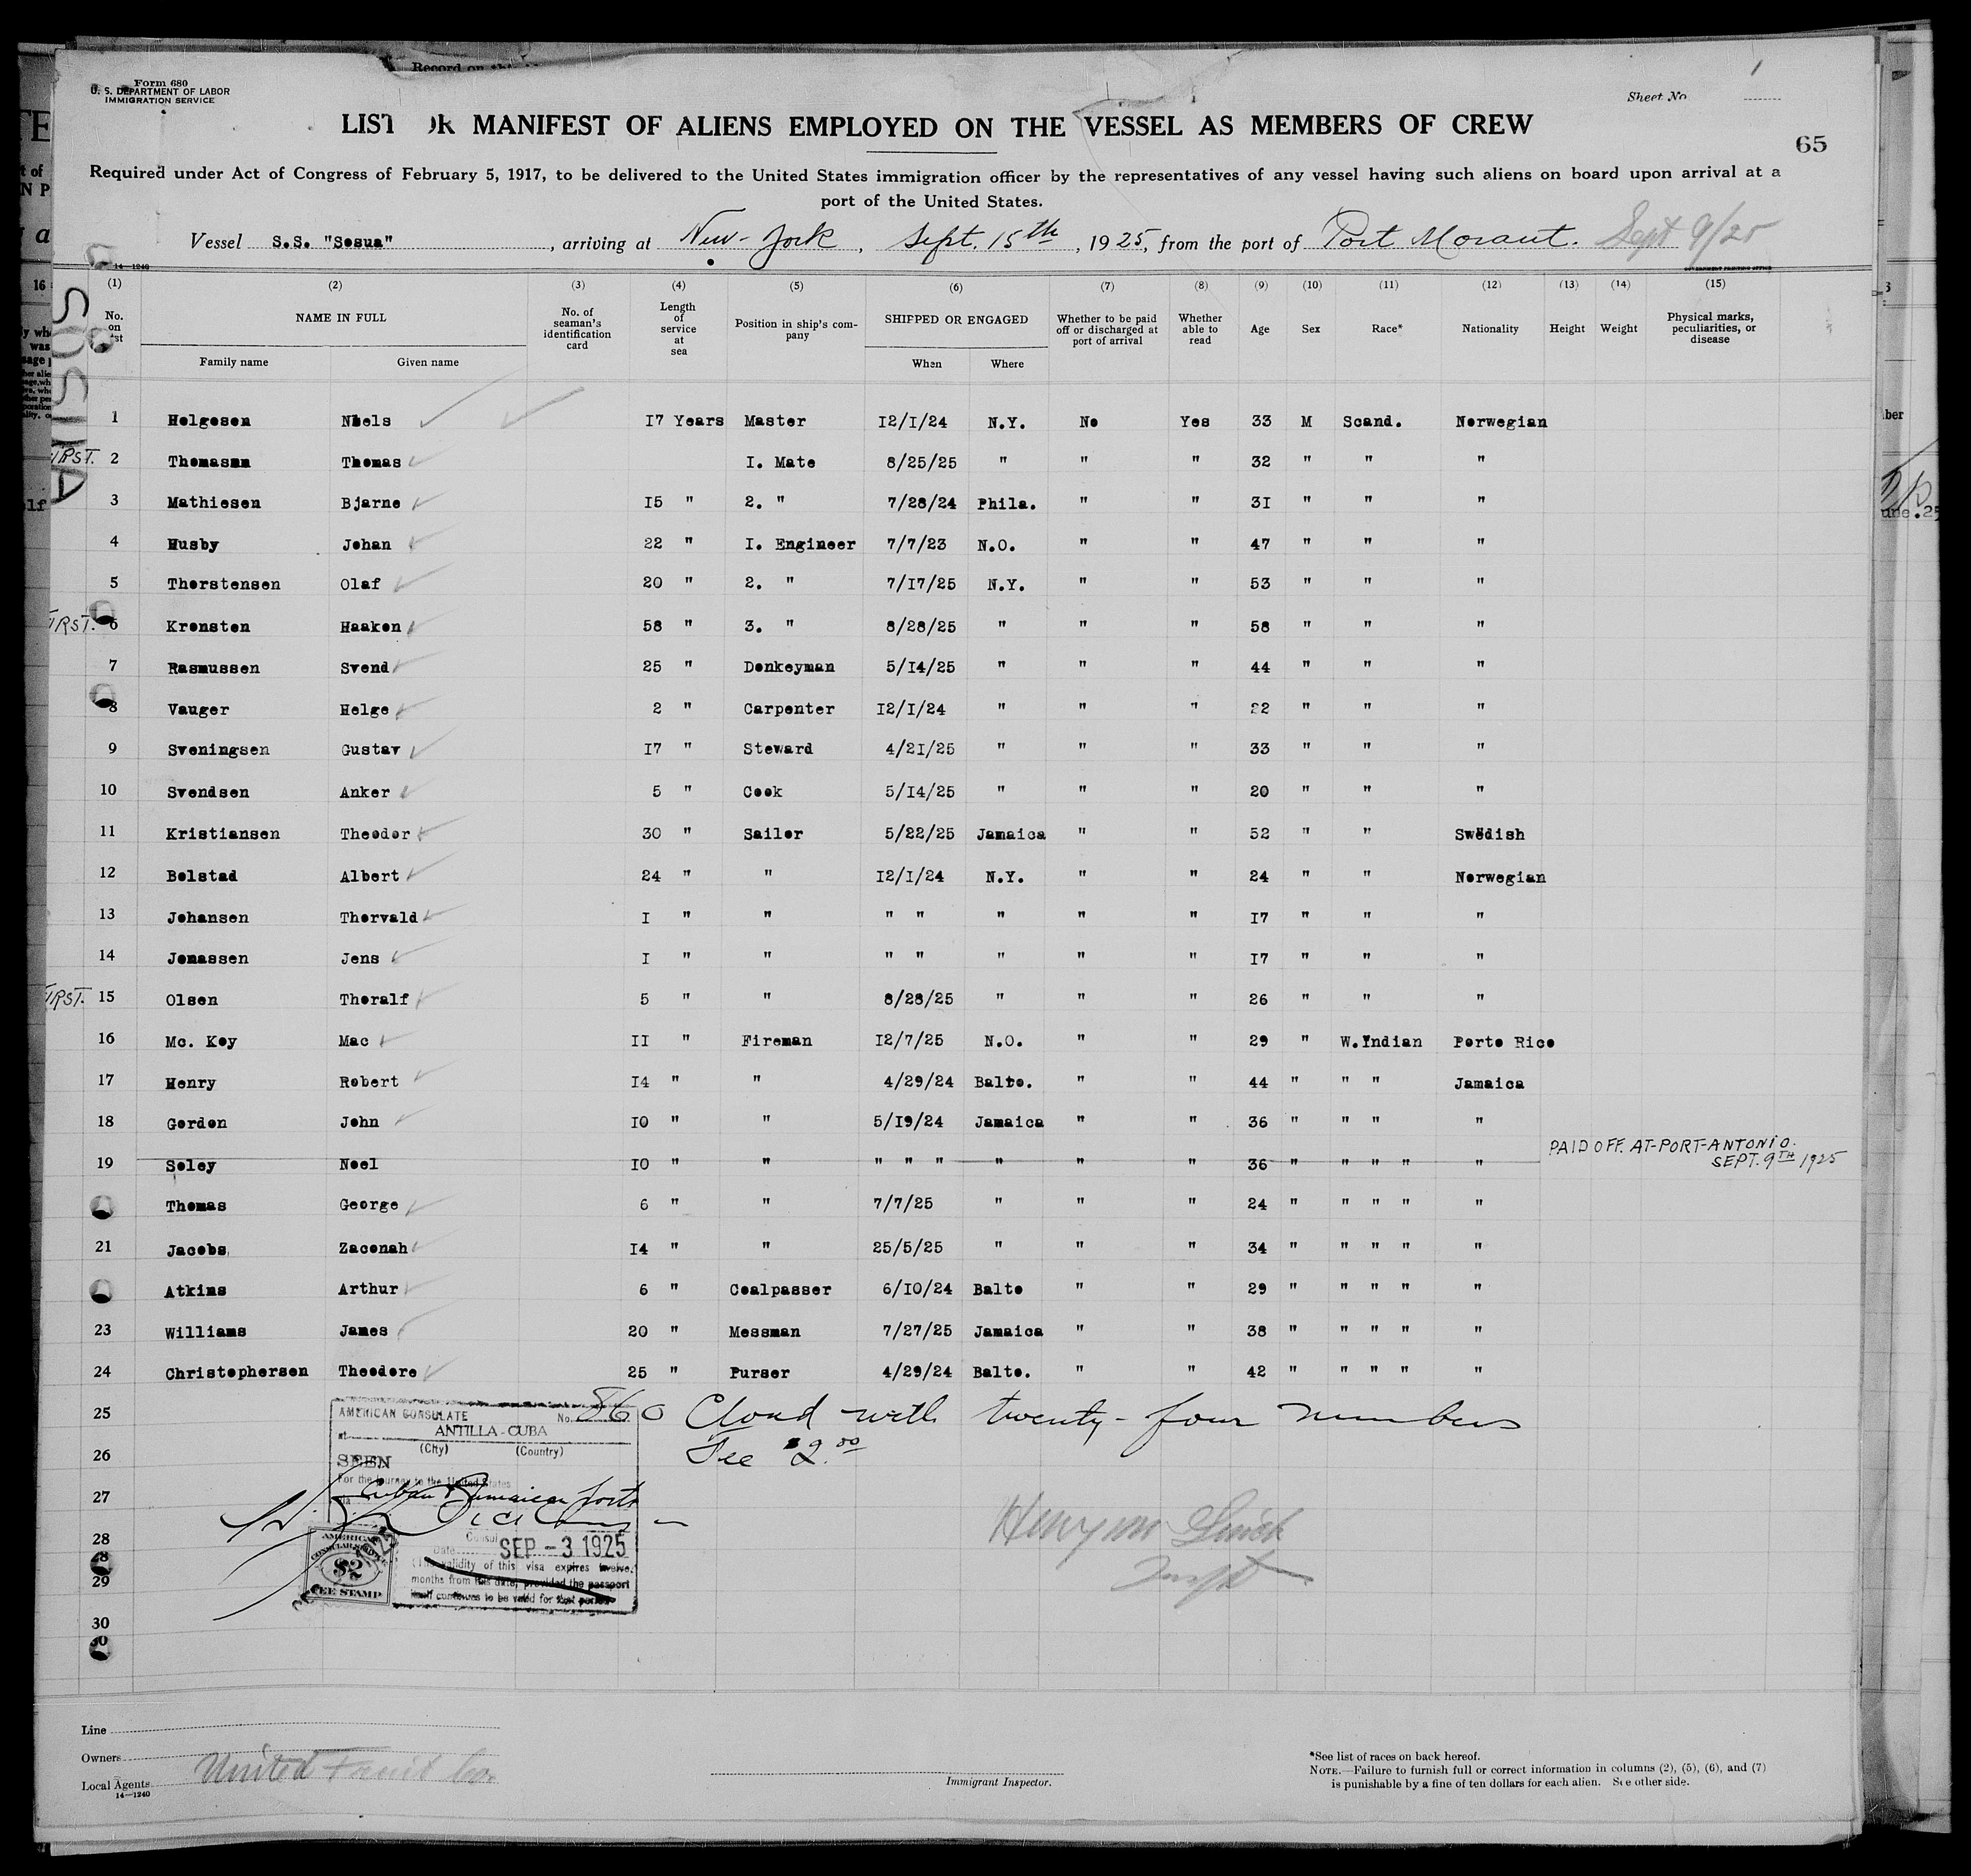 Form 680
U. S. DEPARTMENT OF LABOR
IMMIGRATION SERVICE
Sheet No. 1
LIST OR MANIFEST OF ALIENS EMPLOYED ON THE VESSEL AS MEMBERS OF CREW
65
Required under Act of Congress of February 5, 1917, to be delivered to the United States immigration officer by the representatives of any vessel having such aliens on board upon arrival at a
port of the United States.
Vessel S.S. "Sosua", arriving at New-York, Sept. 15th, 1925, from the port of Port Morant. Sept 9/25
14—1240 GOVERNMENT PRINTING OFFICE
(1) (2) (3) (4) (5) (6) (7) (8) (9) (10) (11) (12) (13) (14) (15)
No. on list NAME IN FULL Family name Given name No. of seaman's identification card Length of service at sea Position in ship's company SHIPPED OR ENGAGED When Where Whether to be paid off or discharged at port of arrival Whether able to read Age Sex Race* Nationality Height Weight Physical marks, peculiarities, or disease
SOSUA
1 Helgesen Niels 17 Years Master 12/1/24 N.Y. No Yes 33 M Scand. Norwegian
FIRST. 2 Thomas I. Mate 8/25/25 " " " 32 " " "
3 Mathiesen Bjarne 15 " 2. " 7/28/24 Phila. " " 31 " " "
4 Husby Johan 22 " I. Engineer 7/7/23 N.O. " " 47 " " "
5 Thorstensen Olaf 20 " 2. " 7/17/25 N.Y. " " 53 " " "
FIRST. 6 Kronsten Haakon 58 " 3. " 8/28/25 " " " 58 " " "
7 Rasmussen Svend 25 " Donkeyman 5/14/25 " " " 44 " " "
8 Vauger Helge 2 " Carpenter 12/1/24 " " " 22 " " "
9 Sveningsen Gustav 17 " Steward 4/21/25 " " " 33 " " "
10 Svendsen Anker 5 " Cook 5/14/25 " " " 20 " " "
11 Kristiansen Theodor 30 " Sailor 5/22/25 Jamaica " " 52 " " Swedish
12 Bolstad Albert 24 " " 12/1/24 N.Y. " " 24 " " Norwegian
13 Johansen Thorvald I " " " " " " " 17 " " "
14 Jonassen Jens I " " " " " " " 17 " " "
FIRST. 15 Olsen Thoralf 5 " " 8/28/25 " " " 26 " " "
16 Mc. Koy Mac II " Fireman 12/7/25 N.O. " " 29 " W.Indian Porto Rico
17 Henry Robert 14 " " 4/29/24 Balto. " " 44 " " " Jamaica
18 Gordon John 10 " " 5/19/24 Jamaica " " 36 " " " "
19 Soley Noel 10 " " " " " " " " 36 " " " " " PAID OFF. AT-PORT-ANTONIO.
SEPT. 9TH 1925
Thomas George 6 " " 7/7/25 " " " 24 " " " " "
21 Jacobs Zaconah 14 " " 25/5/25 " " " 34 " " " " "
Atkins Arthur 6 " Coalpasser 6/10/24 Balto " " 29 " " " " "
23 Williams James 20 " Messman 7/27/25 Jamaica " " 38 " " " " "
24 Christophersen Theodore 25 " Purser 4/29/24 Balto. " " 42 " " " " "
25 Closed with twenty-four members
26 Fee $2.00
27
28
29
30
AMERICAN CONSULATE No. 860
at ANTILLA-CUBA
(City) (Country)
SEEN
For the journey to the United States
via Cuban & Jamaican ports
Consul
Date SEP - 3 1925
(The validity of this visa expires twelve
months from this date, provided the passport
itself continues to be valid for that period)
AMERICAN
CONSULAR SERVICE
$2
FEE STAMP
Henry
Insp
Line
Owners
Local Agents United Fruit Co.
14—1240
Immigrant Inspector.
*See list of races on back hereof.
NOTE.—Failure to furnish full or correct information in columns (2), (5), (6), and (7)
is punishable by a fine of ten dollars for each alien. See other side.